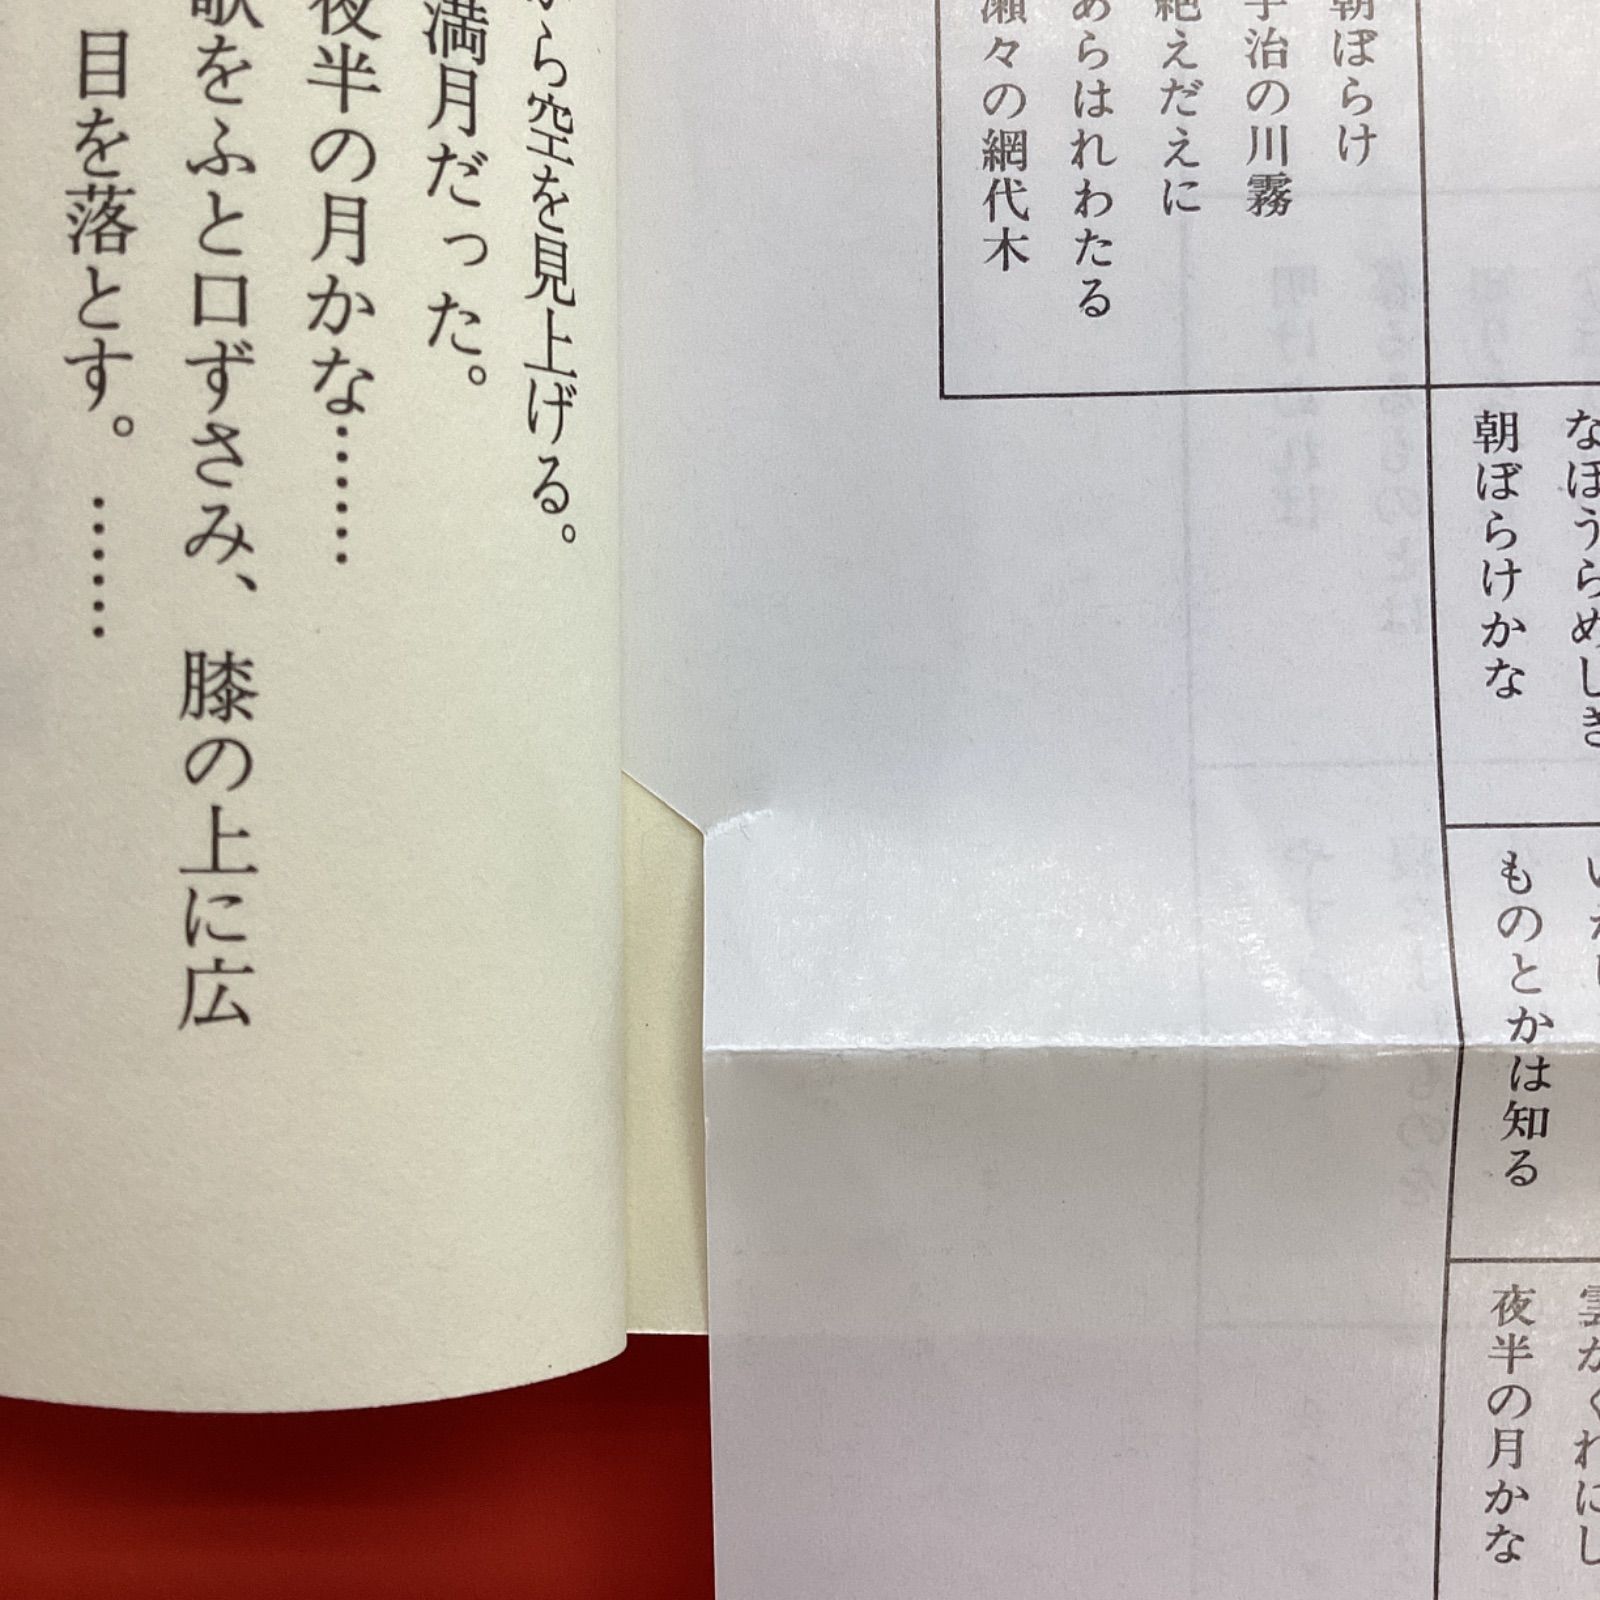 なほうらめしき
朝ぼらけかな
ものとかは知る
雲がくれにし
夜半の月かな
朝ぼらけ
宇治の川霧
絶えだえに
あらはれわたる
瀬々の網代木
ら空を見上げる。
満月だった。
夜半の月かな……
歌をふと口ずさみ、膝の上に広
目を落とす。……